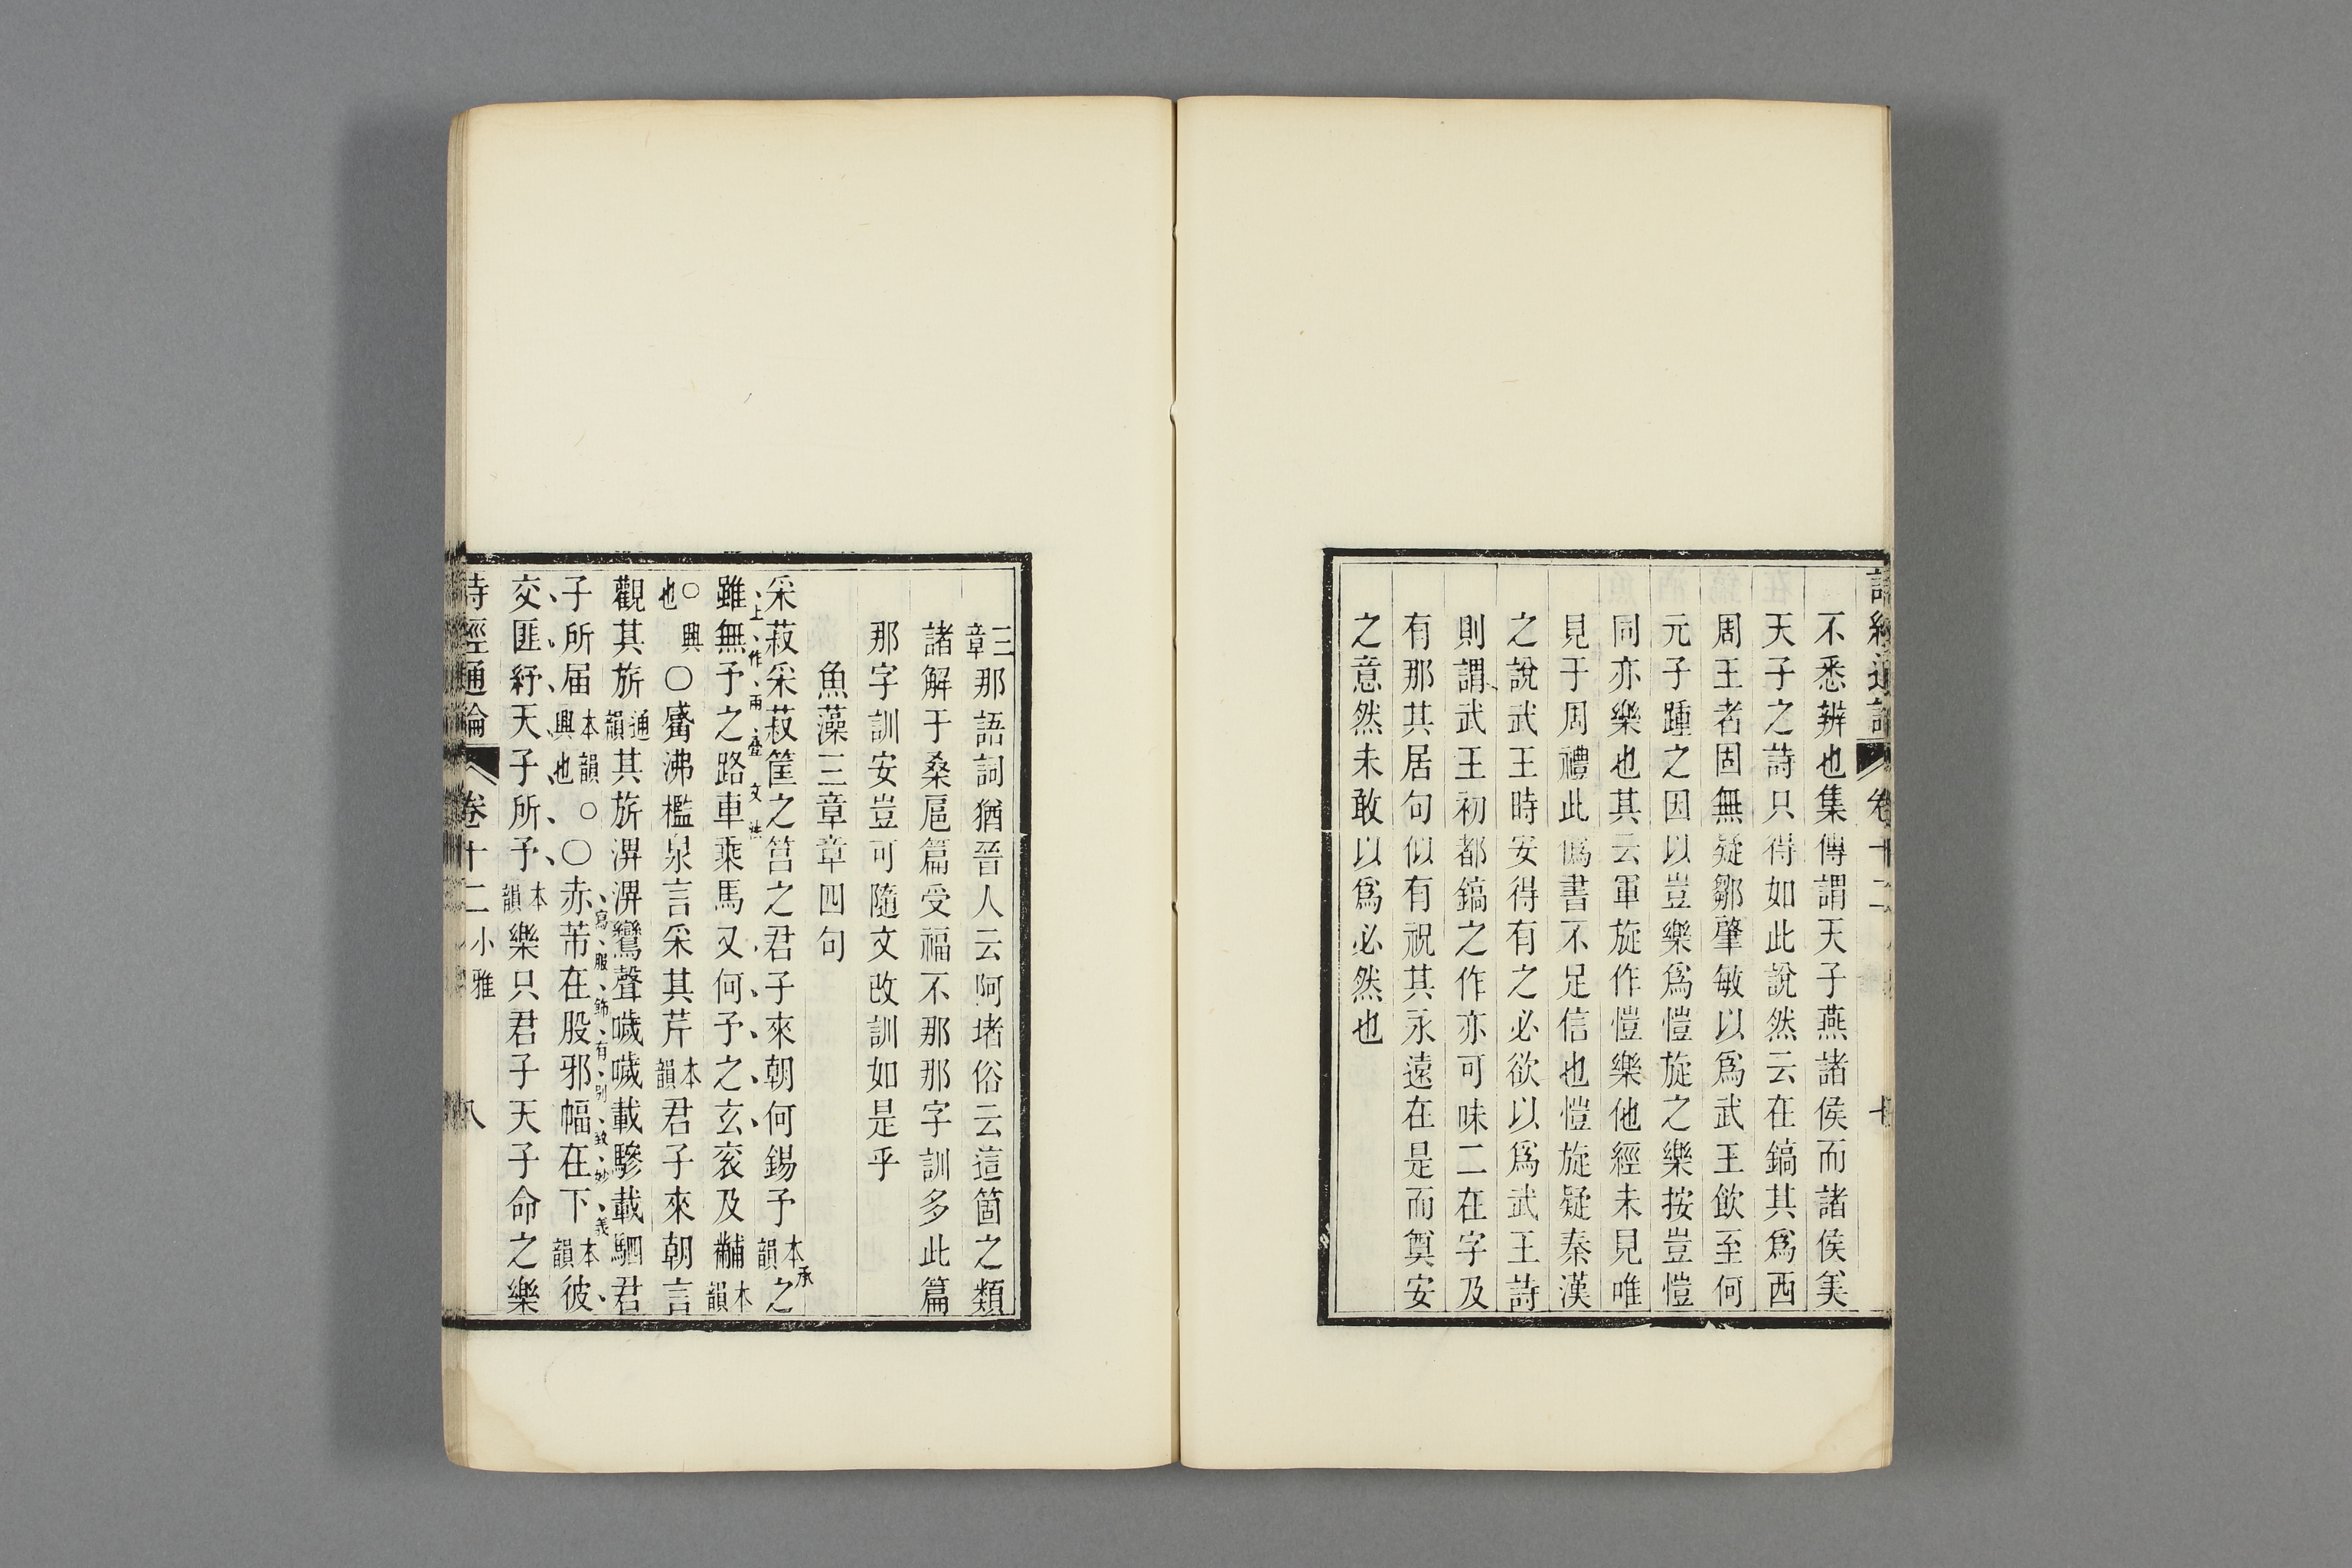 詩經通論 卷十二 七
不悉辨也集傳謂天子燕諸侯而諸侯美
天子之詩只得如此說然云在鎬其爲西
周王者固無疑鄒肇敏以爲武王飲至何
元子踵之因以豈樂爲愷旋之樂按豈愷
同亦樂也其云軍旋作愷樂他經未見唯
見于周禮此僞書不足信也愷旋疑秦漢
之說武王時安得有之必欲以爲武王詩
則謂武王初都鎬之作亦可味二在字及
有那其居句似有祝其永遠在是而奠安
之意然未敢以爲必然也
三章那語詞猶晉人云阿堵俗云這箇之類
諸解于桑扈篇受福不那那字訓多此篇
那字訓安豈可隨文改訓如是乎
魚藻三章章四句
采菽采菽筐之筥之君子來朝何錫予本韻之
承上作兩疊文法
雖無予之路車乘馬又何予之玄袞及黼本韻
○興也○觱沸檻泉言采其芹本韻君子來朝言
觀其旂通韻其旂淠淠鸞聲嘒嘒載驂載駟君
子所届本韻○興也○赤芾在股邪幅在下本韻彼
寫服飾有別致妙義
交匪紓天子所予本韻樂只君子天子命之樂
詩經通論 卷十二 小雅 八